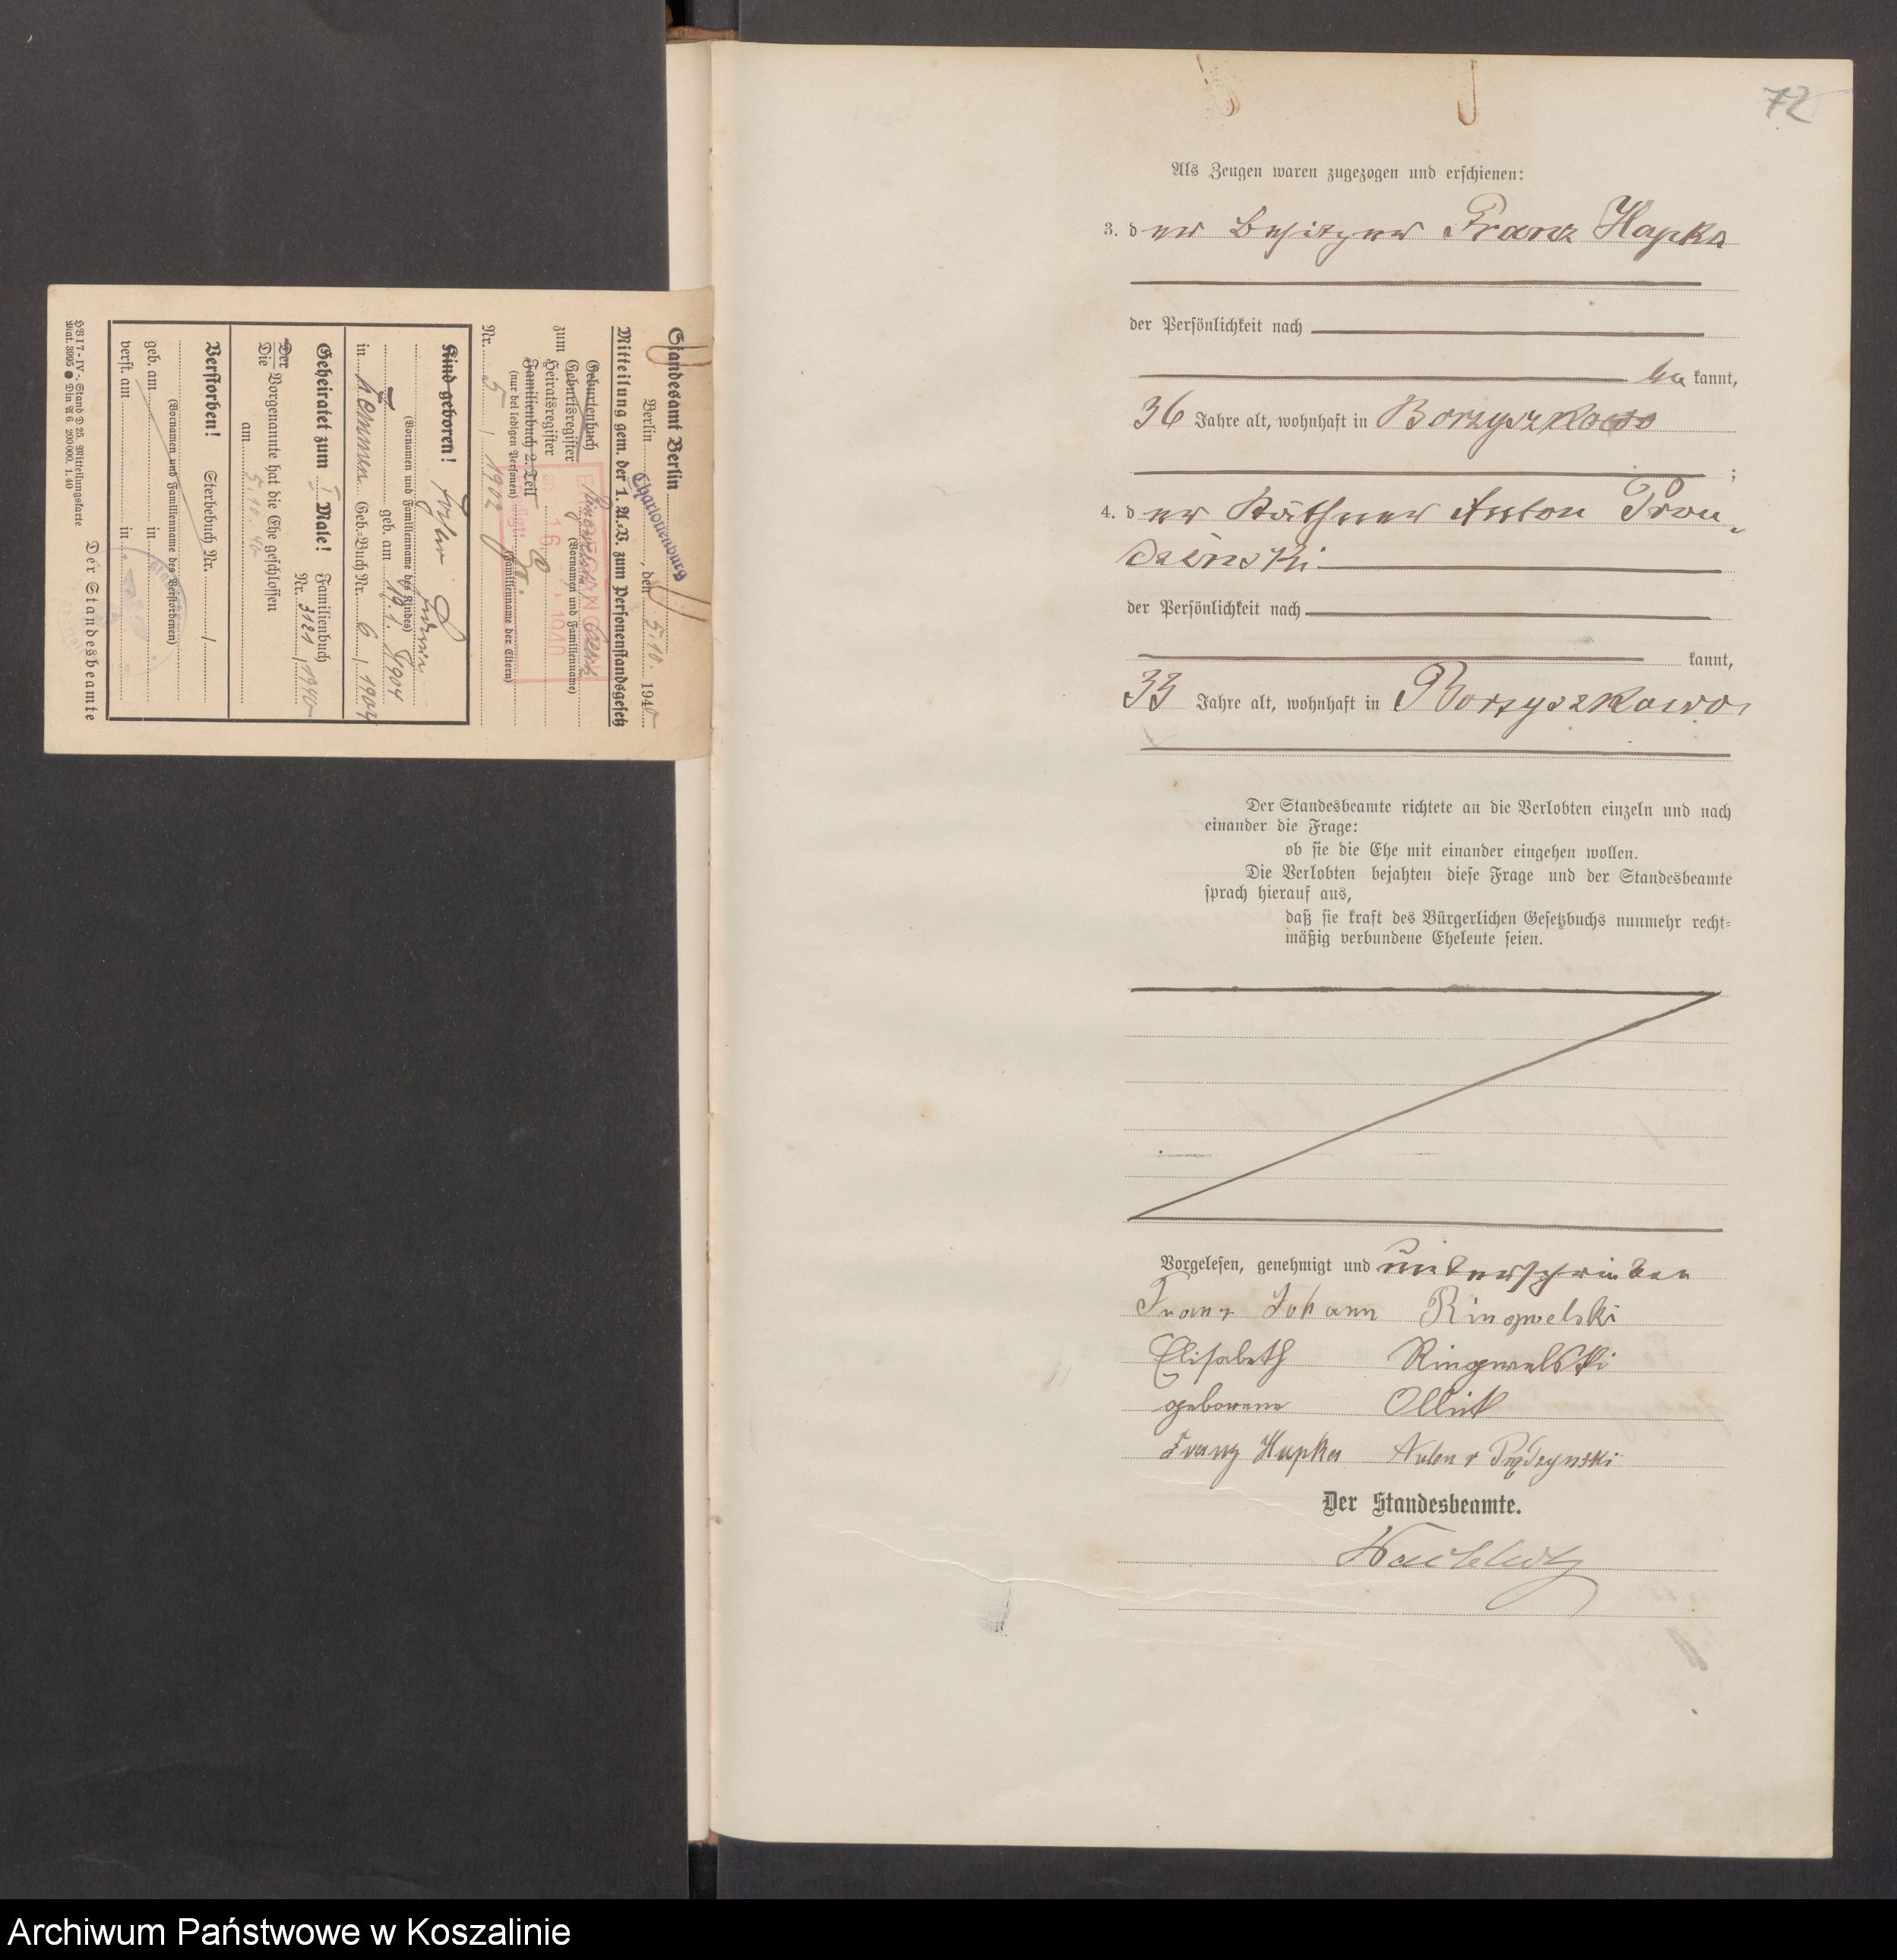 72
Als Zeugen waren zugezogen und erschienen:
3. der Besitzer Franz Hapka
der Persönlichkeit nach
be kannt,
36 Jahre alt, wohnhaft in Borzyszkowo
;
4. der Käthner Anton Pron-
dzinski
der Persönlichkeit nach
kannt,
33 Jahre alt, wohnhaft in Borzyszkowo
Der Standesbeamte richtete an die Verlobten einzeln und nach
einander die Frage:
ob sie die Ehe mit einander eingehen wollen.
Die Verlobten bejahten diese Frage und der Standesbeamte
sprach hierauf aus,
daß sie kraft des Bürgerlichen Gesetzbuchs nunmehr recht-
mäßig verbundene Eheleute seien.
Vorgelesen, genehmigt und unterschrieben
Franz Johann Ringwelski
Elisabeth Ringwelski
geborene Ollik
Franz Hapka Anton v Prądzynski
Der Standesbeamte.
Standesamt Berlin
Charlottenburg
Berlin, den 5.10. 1940
Mitteilung gem. der 1. A.V. zum Personenstandsgesetz
Geburtenbuch
zum Geburtsregister
Heiratsregister
(Vornamen und Familienname)
Familienbuch 2. Teil
(nur bei ledigen Personen) (Familienname der Eltern)
Nr. 5 / 1902
Kind geboren!
(Vornamen und Familienname des Kindes)
geb. am 19.1.1904
in Kemmen Geb.-Buch Nr. 6 / 1904
Geheiratet zum I Male! Familienbuch
Nr. 3121 / 1940
Der
Die Vorgenannte hat die Ehe geschlossen
am 5.10.40
Verstorben! Sterbebuch Nr. /
(Vornamen und Familienname des Verstorbenen)
geb. am in
verst. am in
Der Standesbeamte
HB 17-IV-. Stand D 25. Mitteilungskarte
Mat. 3995 ● Din A 6. 200 000. 1. 40
Archiwum Państwowe w Koszalinie